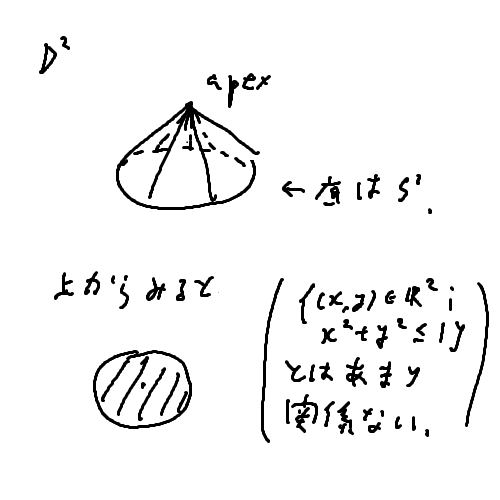 D²
apex
← 底は S¹.
上からみると
{(x,y)∈ℝ²;
x²+y²≤1}
とはあまり
関係ない.